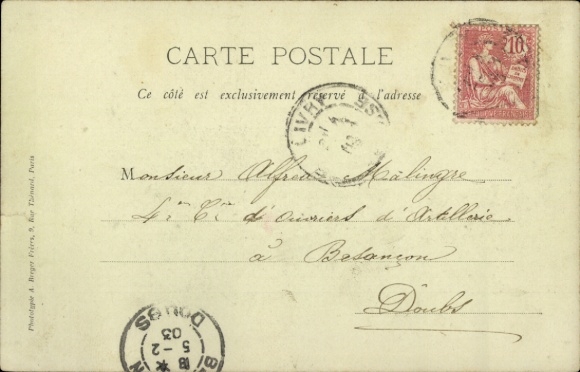 CARTE POSTALE
Ce côté est exclusivement réservé à l'adresse
POSTES
10
REPUBLIQUE FRANÇAISE
Monsieur Alfred Malingre
4e Cie d'ouvriers d'Artillerie
à Besançon
Doubs
Phototypie A. Berger Frères, 9, Rue Thénard, Paris
DOUBS
5-2
03